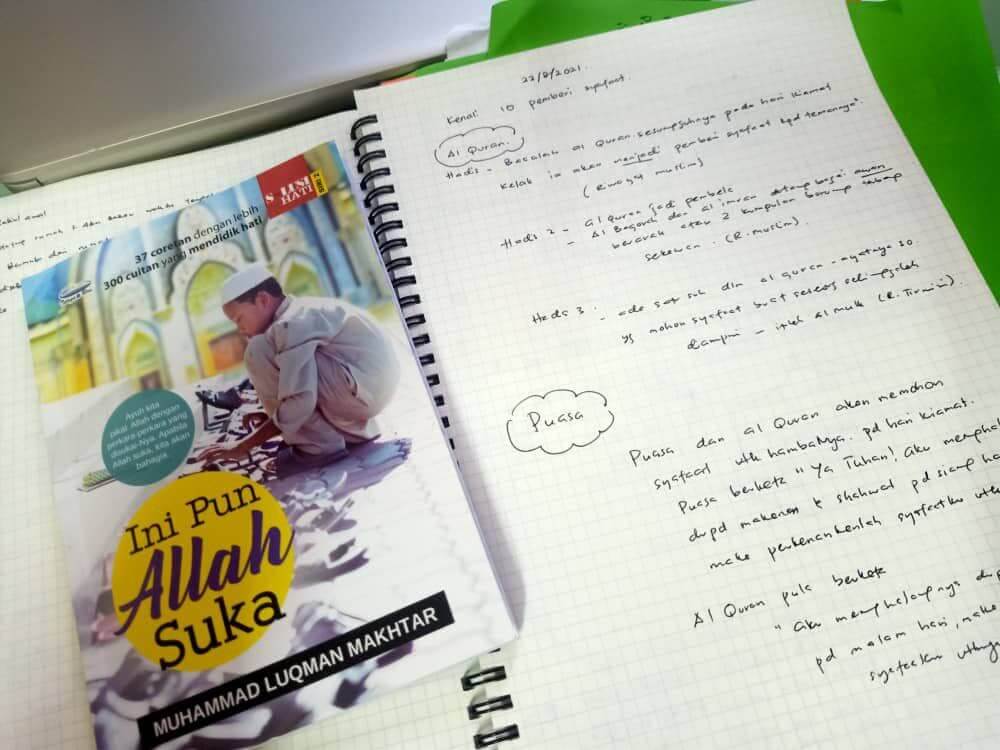 37 coretan dengan lebih
300 cuitan yang mendidik hati
S LUSI
HATI
Ayuh kita
pikat Allah dengan
perkara-perkara yang
disukai-Nya. Apabila
Allah suka, kita akan
bahagia.
Ini Pun
Allah
Suka
MUHAMMAD LUQMAN MAKHTAR
awal
rumah
22/8/2021.
Kenali 10 pemberi syafaat.
Al Quran.
Hadis - Bacalah al Quran. sesungguhnya pada hari kiamat
kelak ia akan menjadi pemberi syafaat kpd temannya".
(Riwayat muslim)
Hadis 2 - al quran jadi pembela
- Al Baqarah dan al imran datang bagai awan
berarak atau 2 kumpulan burung terbang
sekawan. (R. muslim).
Hadis 3. - ada satu surah dlm al quran - ayatnya 30
yg mohon syafaat buat seseorg sehingga
diampuni - itulah Al mulk (R. Tirmizi).
Puasa
Puasa dan al Quran akan memohon
syafaat utk hambaNya. pd hari kiamat.
Puasa berkata "Ya Tuhan! aku
drpd makanan & shahwat pd siang
maka perkenankanlah syafaatku
Al Quran pula berkata
" aku menghalangnya
pd malam hari, maka
syafaatku utknya